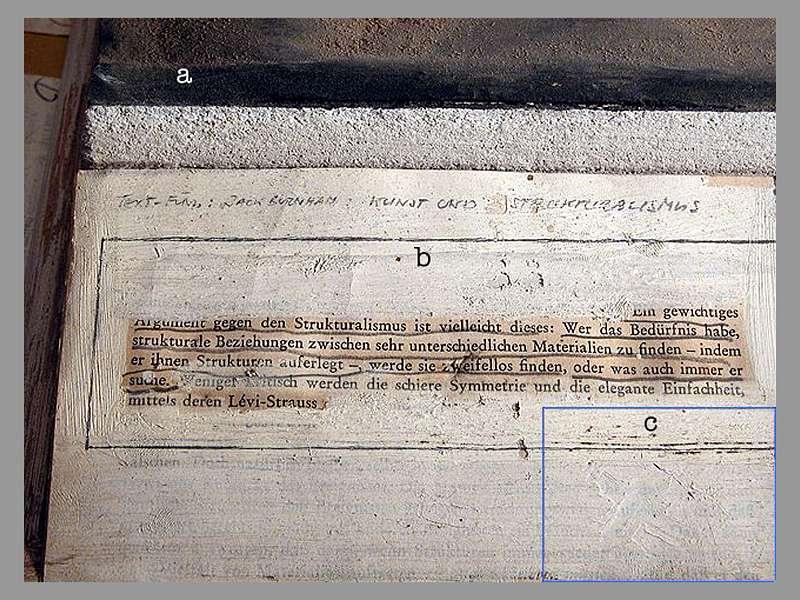 a
TEXT-FUND: JACK BURNHAM: KUNST UND STRUKTURALISMUS
b
Ein gewichtiges
Argument gegen den Strukturalismus ist vielleicht dieses: Wer das Bedürfnis habe,
strukturale Beziehungen zwischen sehr unterschiedlichen Materialien zu finden – indem
er ihnen Strukturen auferlegt –, werde sie zweifellos finden, oder was auch immer er
suche. Weniger kritisch werden die schiere Symmetrie und die elegante Einfachheit,
mittels deren Lévi-Strauss
c